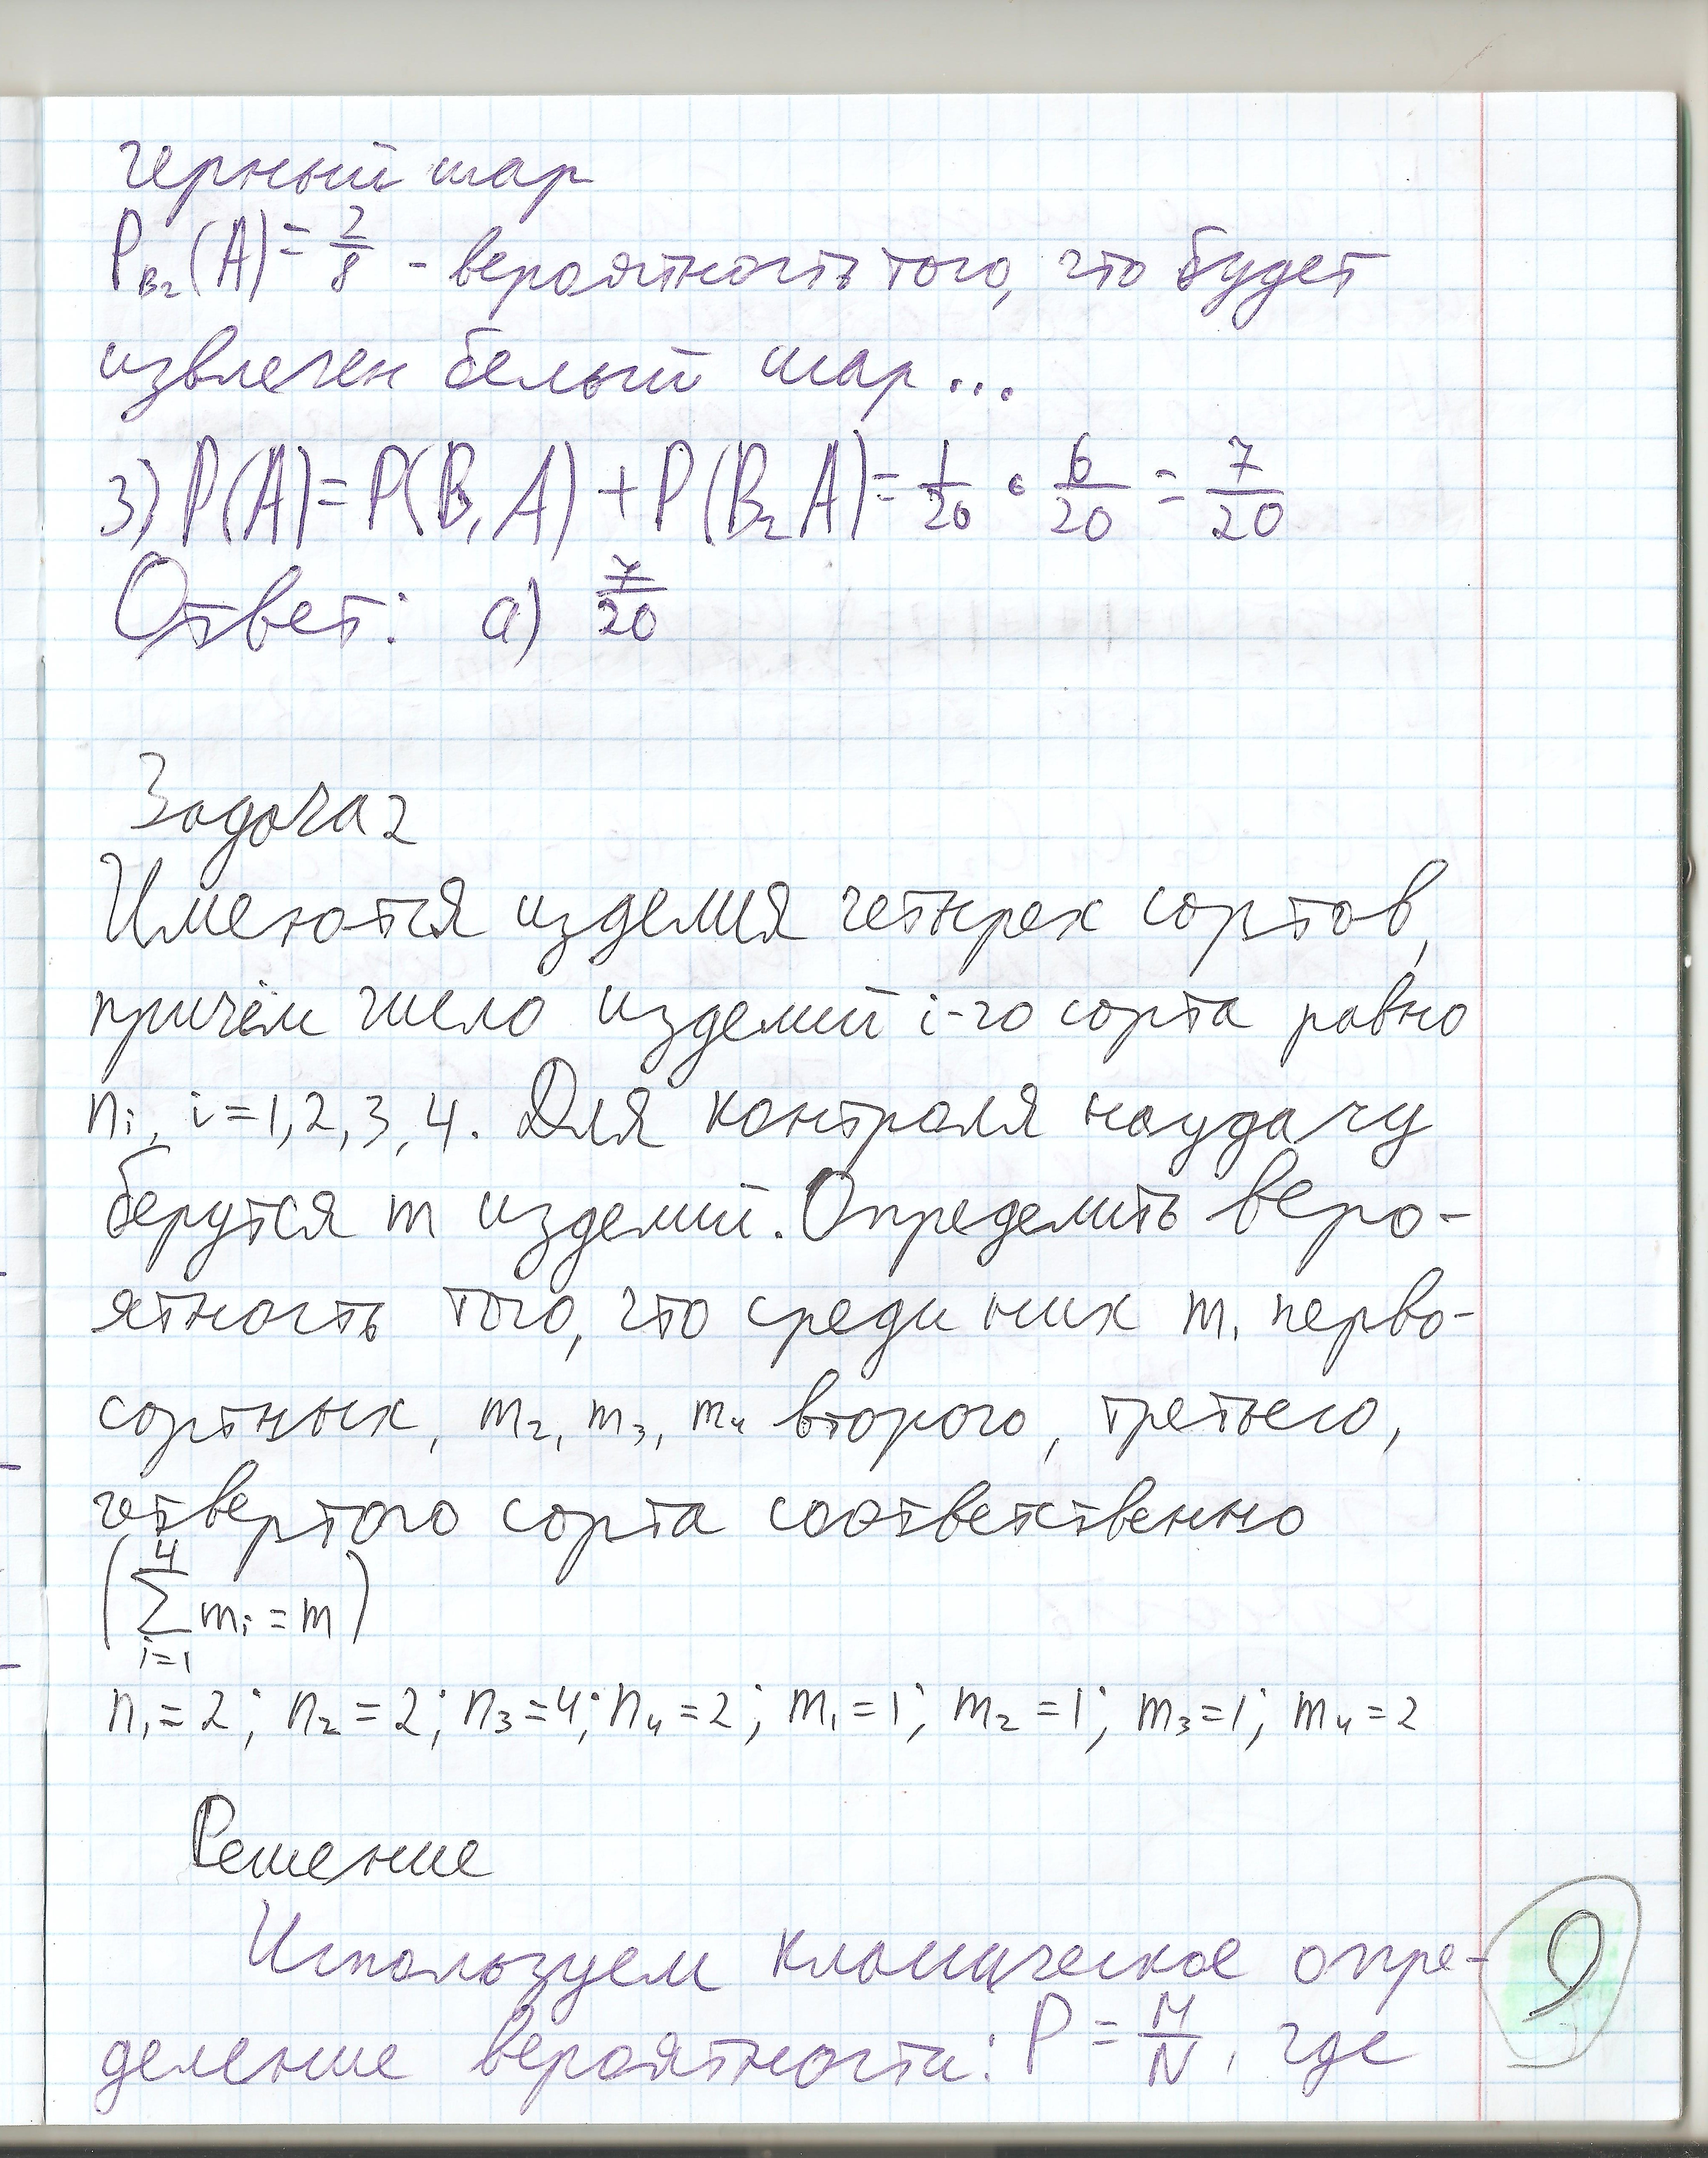 черный шар
P_B₂(A) = 2/8 - вероятность того, что будет
извлечен белый шар...
3) P(A) = P(B₁A) + P(B₂A) = 1/20 • 6/20 = 7/20
Ответ: а) 7/20
Задача 2
Имеются изделия четырех сортов,
причём число изделий i-го сорта равно
nᵢ, i=1,2,3,4. Для контроля наудачу
берутся m изделий. Определить веро-
ятность того, что среди них m₁ перво-
сортных, m₂, m₃, m₄ второго, третьего,
четвертого сорта соответственно
(∑_{i=1}^{4} mᵢ = m)
n₁=2; n₂=2; n₃=4; n₄=2; m₁=1; m₂=1; m₃=1; m₄=2
Решение
Используем классическое опре-
деление вероятности: P = M/N, где
9